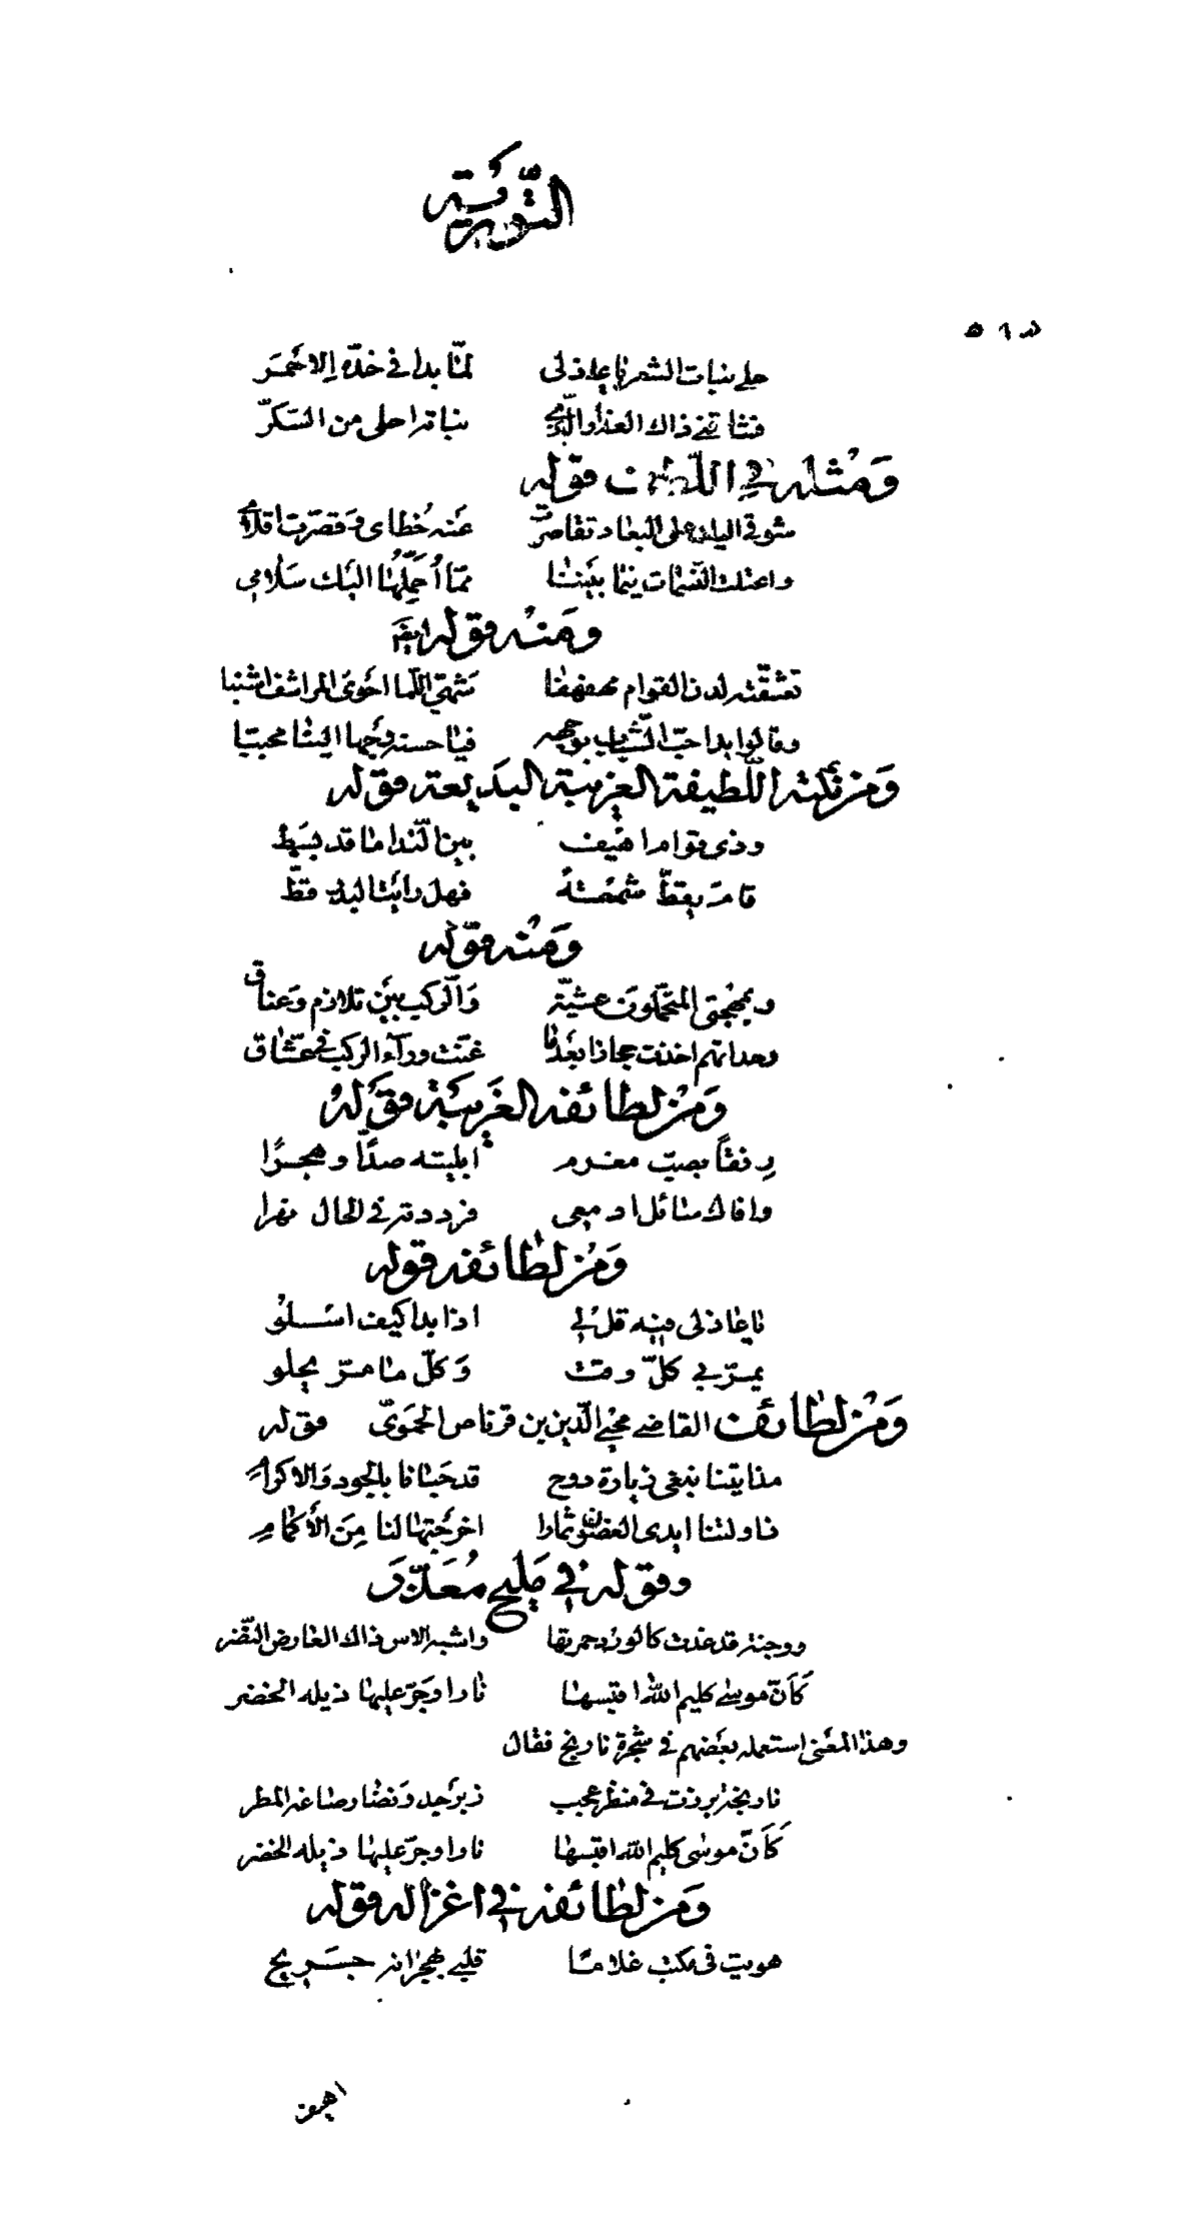 التورية
حلى نبات الشعر يا عاذلى لمّا بدا فى خدّه الاحمر
فشاقنى ذاك العذار الّذى نباته احلى من السّكّر
وَمثله فى اللطف قوله
شوقى اليك على البعاد تقاصرت عَنه خُطاى وقصّرت اقلامى
واعتلت النّسمات فيما بيننا ممّا اُحمّلُها اليك سَلامى
ومَنه قوله ايضا
تعشّقته لدن القوام مهفهفا شهىّ اللّما احوَى المراشف اشنبا
وقالوا بدا حبّ الشّباب بوجهه فيا حسنه وجها الينا محببّا
وَمن نكته اللّطيفة الغريبة البديعة قوله
وذى قوام اهيف بين النّدامَا قد نشط
قامَ يقطّ شمعَة فهل رايت البدر قطّ
وَمنه قوله
وبمهجتى المتحمّلون عشيّة وَالركب بين تلازم وَعناق
وحداتهم اخذت حجازا بعدما غنّت ورآء الركب فى عشّاق
وَمن لطائفه الغَريبَة قوله
رفقاً بصبّ مغرم ابليته صدّاً وهجراً
وافاك سائل ادمعى فرددته فى الحال نهرا
وَمن لطائفه قوله
يا عاذلى فيه قل لى اذا بدا كيف اسلو
يمرّ بى كلّ وقت وَكلّ ما مرّ يحلو
وَمن لطائف القاضى محيى الدّين بن قرناص الحموىّ قوله
مذ اتينا نبغى زيارة دوح قد حَبانا بالجود وَالاكرام
ناولتنا ايدى الغصون ثمارا اخرجَتها لنا مِنَ الأكمام
وقوله فى مَليح مُعَذّر
ووجنة قد غدت كالورد حمرتها واشبه الاس ذاك العارض النّضر
كَاَنّ موسى كليم اللّه اقتبسها نارا وَجَرّ عليها ذيله الخضر
وهذا المعنى استعمله بعضهم فى شجرة نارنج فقال
نارنجة برزت فى منظر عجيب زبرجد وَنضار صاغه المطر
كَاَنّ موسى كليم اللّه اقتبسها نارا وجرّ عليها ذيله الخضر
وَمن لطائفه فى اغزاله قوله
هويت فى مكتب غلاما قلبى بهجرانه جريح